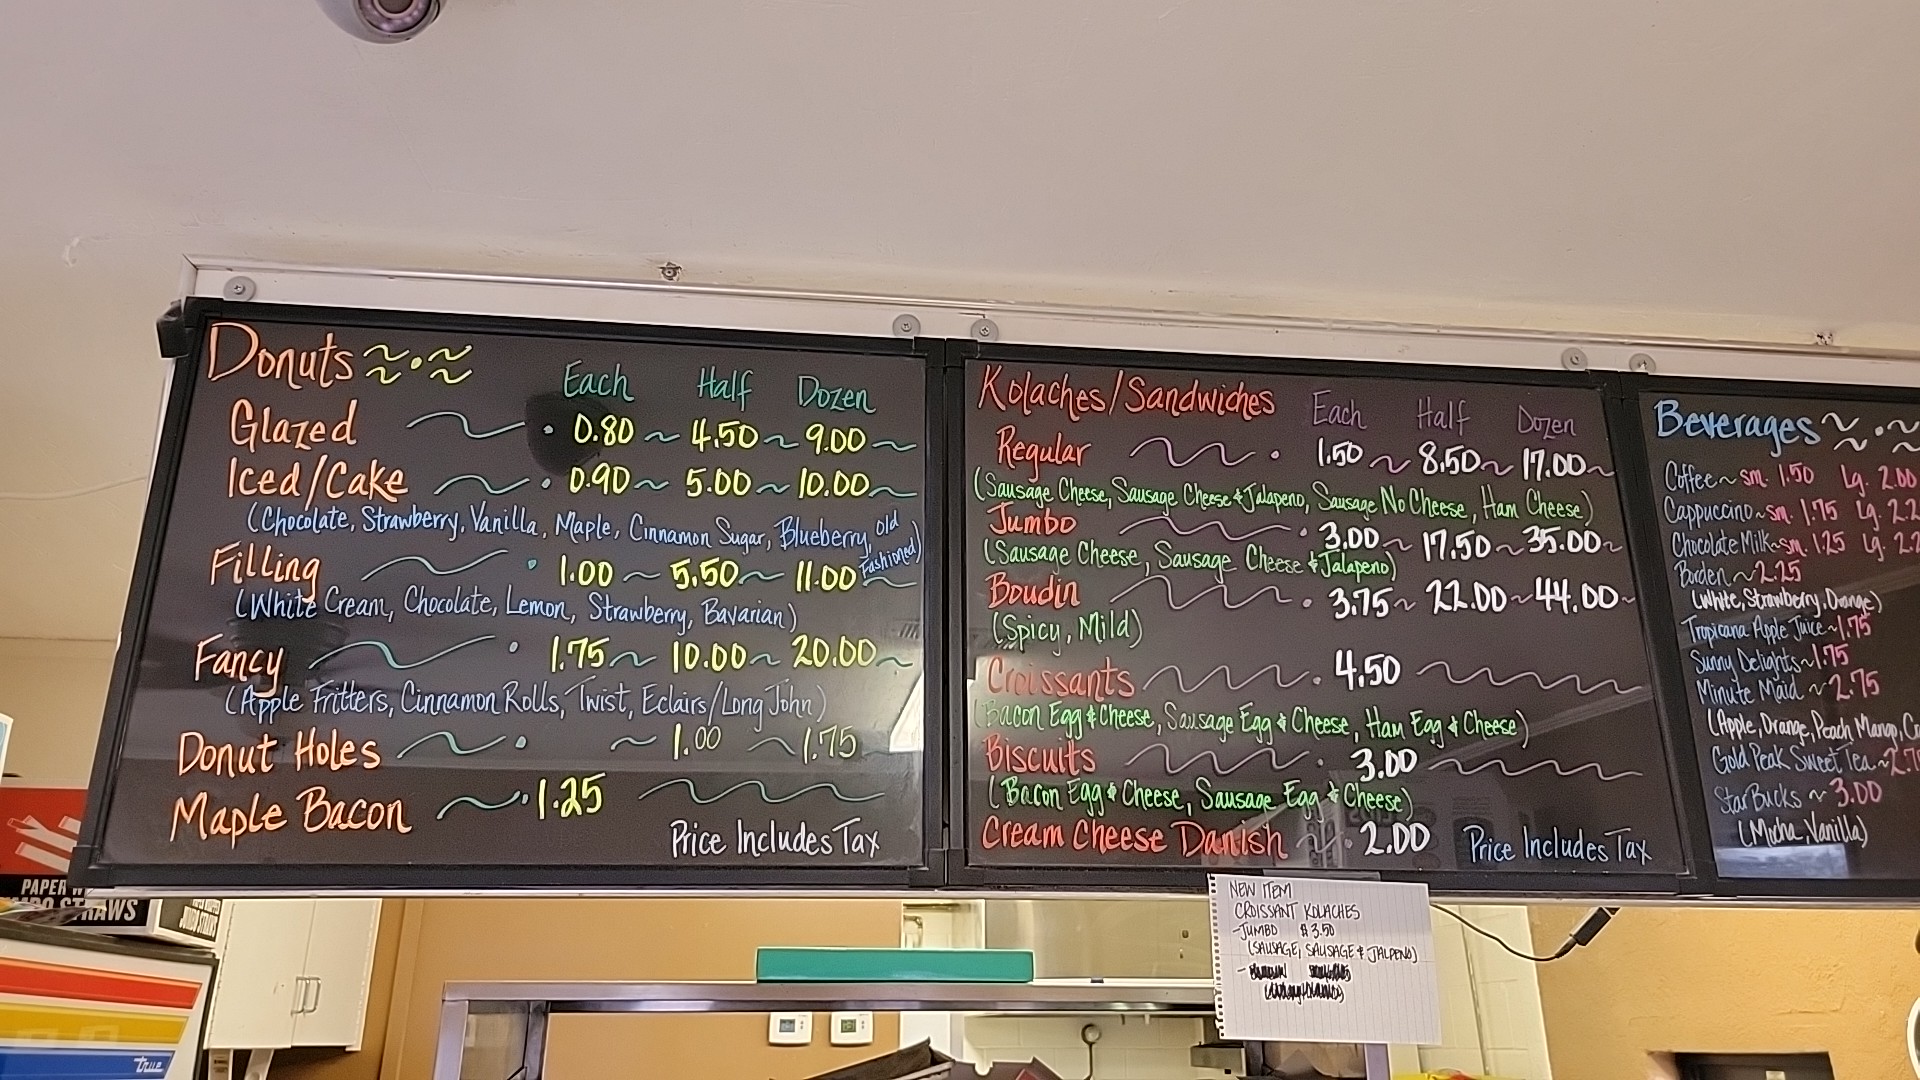 Donuts
Each Half Dozen
Glazed 0.80 ~ 4.50 ~ 9.00
Iced/Cake 0.90 ~ 5.00 ~ 10.00
(Chocolate, Strawberry, Vanilla, Maple, Cinnamon Sugar, Blueberry, Old Fashioned)
Filling 1.00 ~ 5.50 ~ 11.00
(White Cream, Chocolate, Lemon, Strawberry, Bavarian)
Fancy 1.75 ~ 10.00 ~ 20.00
(Apple Fritters, Cinnamon Rolls, Twist, Eclairs/Long John)
Donut Holes ~ 1.00 ~ 1.75
Maple Bacon 1.25
Price Includes Tax
Kolaches/Sandwiches Each Half Dozen
Regular 1.50 ~ 8.50 ~ 17.00
(Sausage Cheese, Sausage Cheese & Jalapeno, Sausage No Cheese, Ham Cheese)
Jumbo 3.00 ~ 17.50 ~ 35.00
(Sausage Cheese, Sausage Cheese & Jalapeno)
Boudin 3.75 ~ 22.00 ~ 44.00
(Spicy, Mild)
Croissants 4.50
(Bacon Egg & Cheese, Sausage Egg & Cheese, Ham Egg & Cheese)
Biscuits 3.00
(Bacon Egg & Cheese, Sausage Egg & Cheese)
Cream Cheese Danish 2.00
Price Includes Tax
Beverages
Coffee ~ sm. 1.50 Lg. 2.00
Cappuccino ~ sm. 1.75 Lg. 2.2
Chocolate Milk ~ sm. 1.25 Lg. 2.2
Borden ~ 2.25
(White, Strawberry, Orange)
Tropicana Apple Juice ~ 1.75
Sunny Delights ~ 1.75
Minute Maid ~ 2.75
(Apple, Orange, Peach Mango,
Gold Peak Sweet Tea ~ 2.7
StarBucks ~ 3.00
(Micha, Vanilla)
NEW ITEM
CROISSANT KOLACHES
-JUMBO $3.50
(SAUSAGE, SAUSAGE & JALPENO)
PAPER
STRAWS
JUMBO STRAWS
true